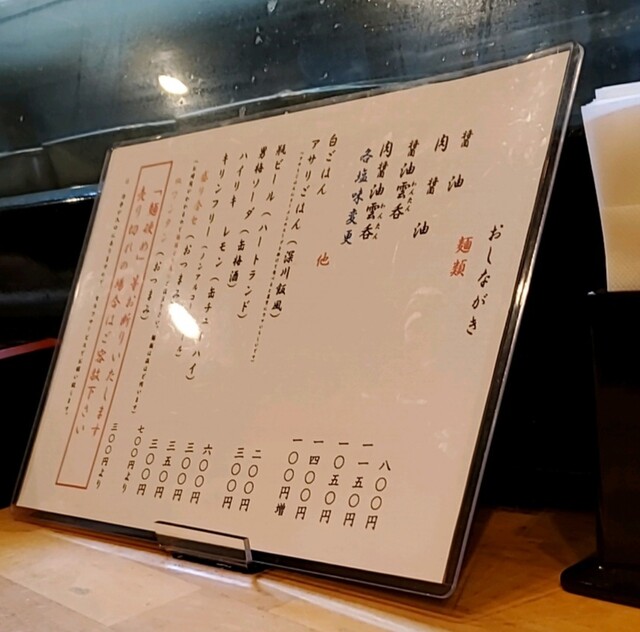 おしながき
麺類
醤油 八〇〇円
肉醤油 一一五〇円
醤油雲呑 一〇五〇円
肉醤油雲呑 一四〇〇円
各塩味変更 一〇〇円増
他
白ごはん 二〇〇円
アサリごはん（深川飯風） 三〇〇円
瓶ビール（ハートランド） 六〇〇円
男梅ソーダ（缶梅酒） 三〇〇円
ハイリキ レモン（缶チューハイ） 三五〇円
キリンフリー（ノンアルコール） 三〇〇円
盛り合せ（おつまみ） 七〇〇円より
（おつまみ） 三〇〇円より
「麺硬め」等お断りいたします
売り切れの場合はご容赦下さい